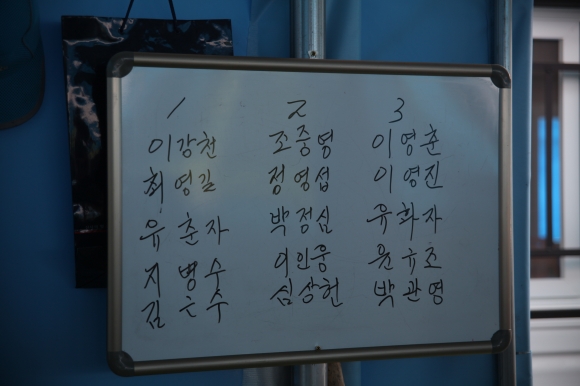 1 2 3
이강천 조중영 이영춘
최영길 정영섭 이영진
유춘자 박정심 유화자
지병수 이인웅 윤규조
김근수 심상헌 박관영